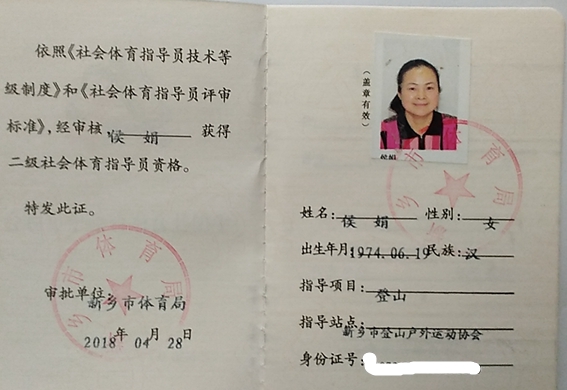 依照《社会体育指导员技术等
级制度》和《社会体育指导员评审
标准》，经审核 侯 娟 获得
二级社会体育指导员资格。
特发此证。
审批单位：新乡市体育局
2018年 04月 28日
（盖章有效）
侯娟
乡市体育局
姓名：侯 娟 性别：女
出生年月：1974.06.19民族：汉
指导项目：登山
指导站点：新乡市登山户外运动协会
身份证号：